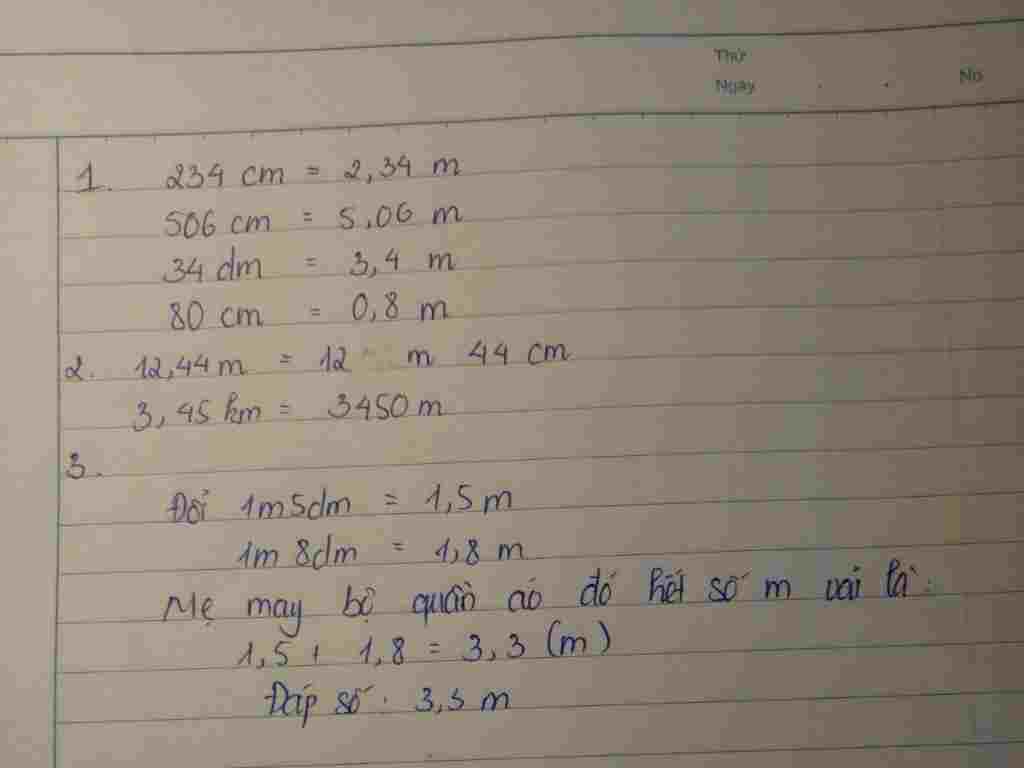 Thứ
Ngày . . No
1. 234 cm = 2,34 m
506 cm = 5,06 m
34 dm = 3,4 m
80 cm = 0,8 m
2. 12,44 m = 12 m 44 cm
3,45 km = 3450 m
3.
Đổi 1m5dm = 1,5 m
1m 8dm = 1,8 m
Mẹ may bộ quần áo đó hết số m vải là:
1,5 + 1,8 = 3,3 (m)
Đáp số: 3,3 m